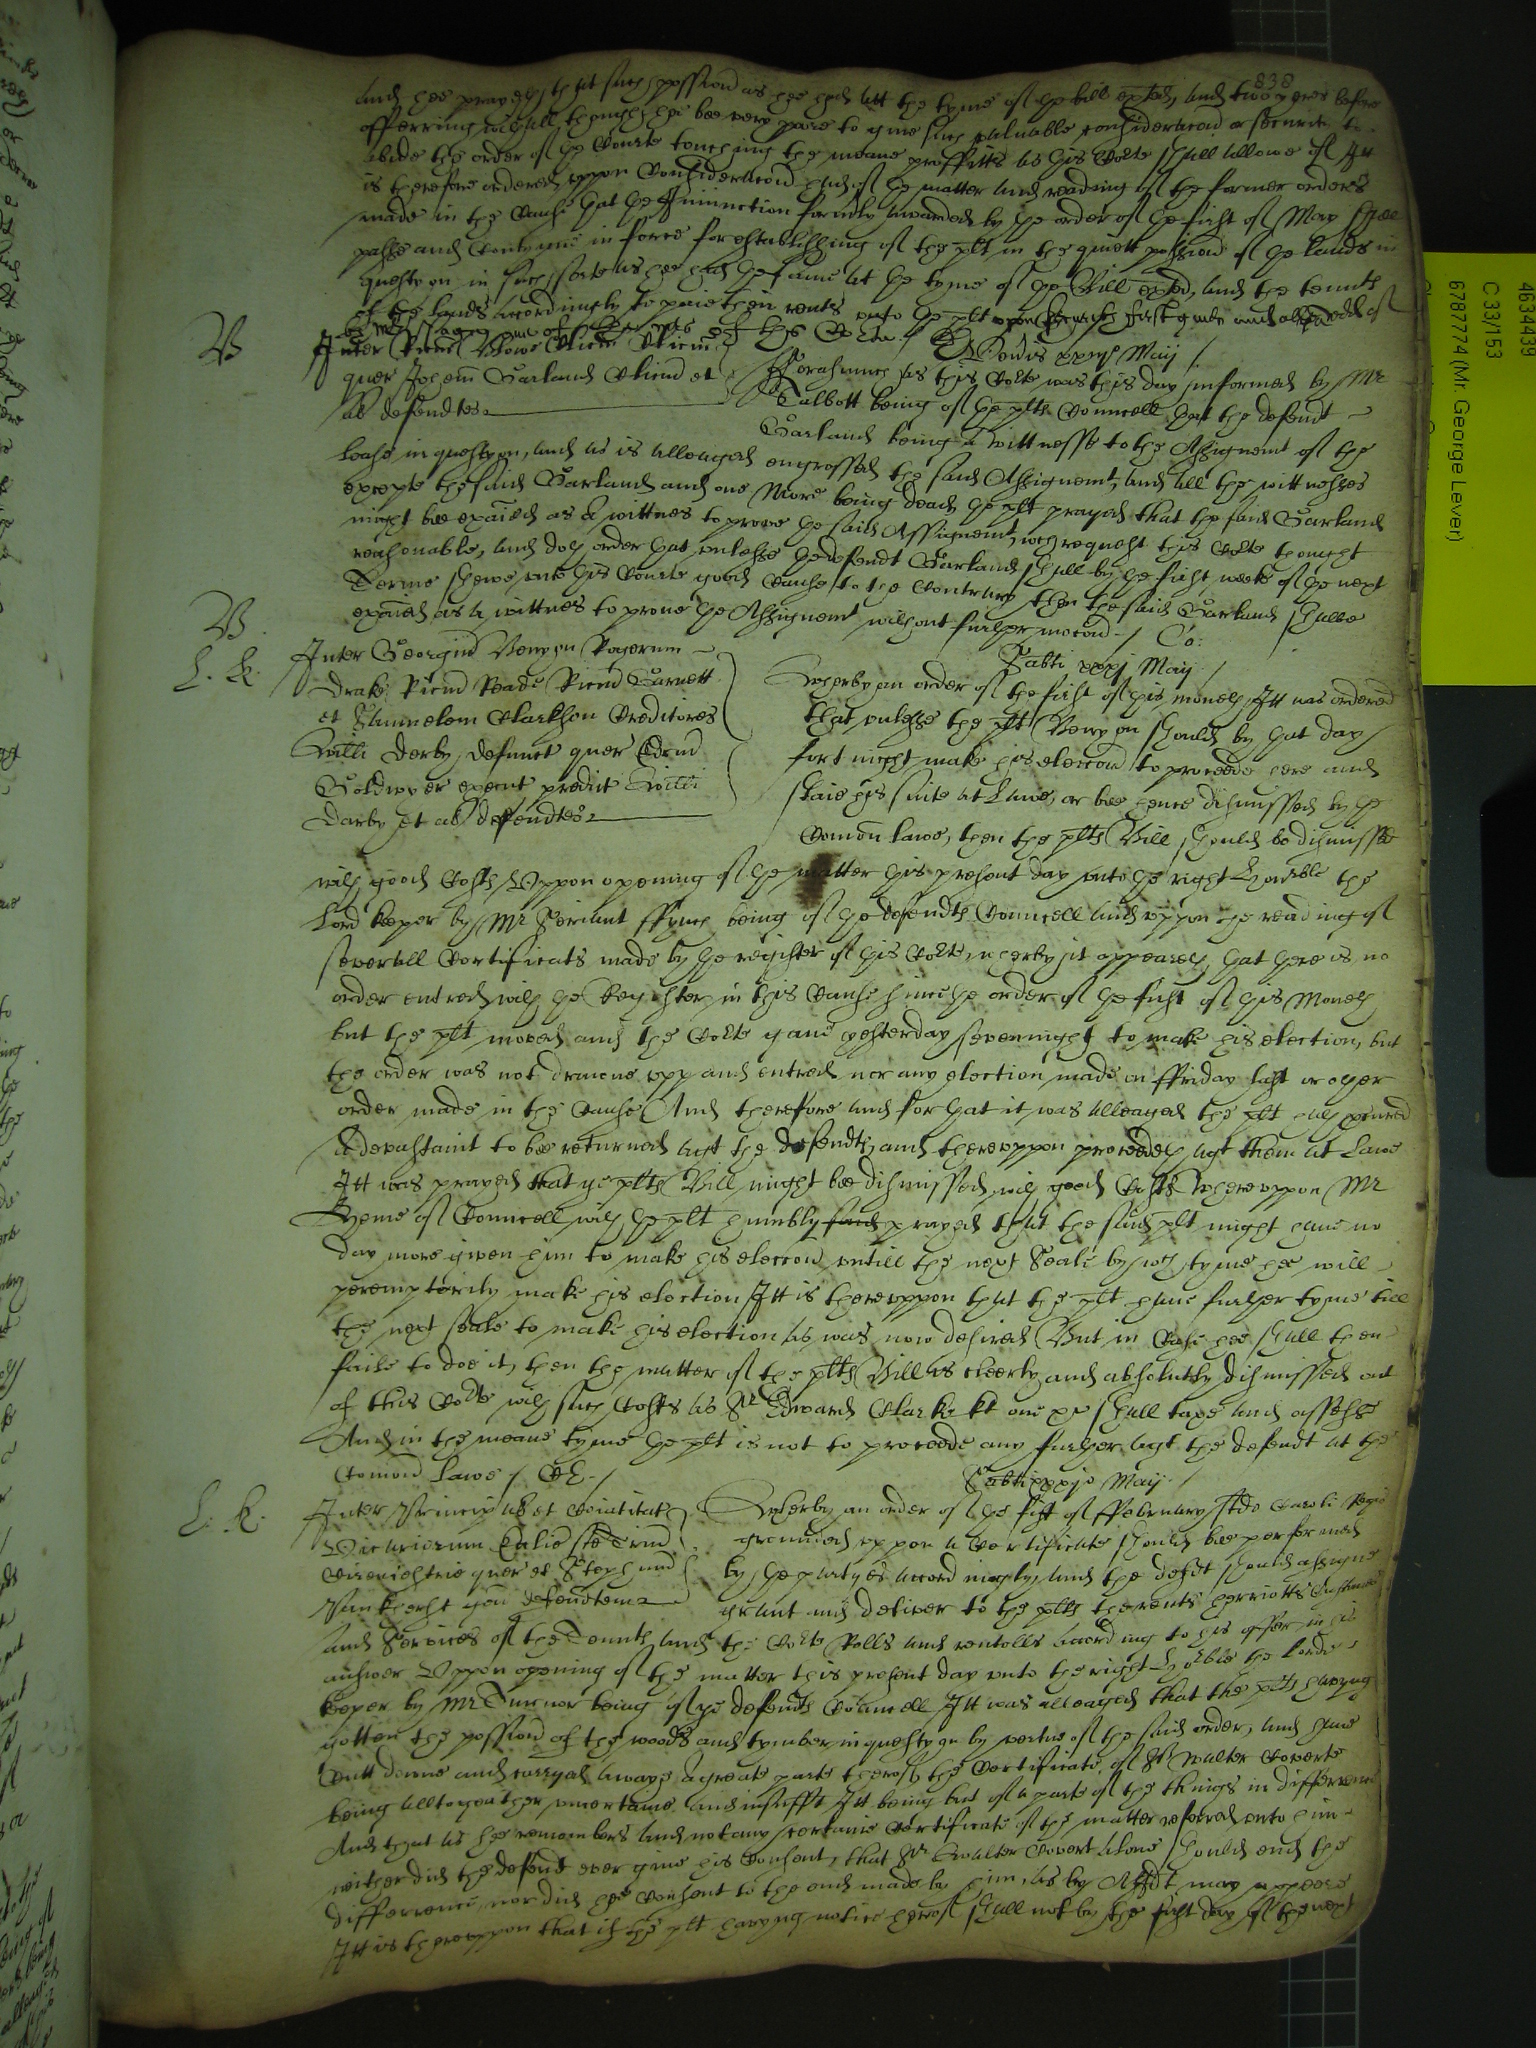 838
and hee prayeth that such possion as hee had att the tyme of the bill exhited, and two yeres before
offerring withall though he bee very poore to give such valuable consideracon or securitie to
abide the order of the Courte touching the meane proffitts as this Corte shall allowe of Itt
is therefore ordered uppon Consideracon had of the matter and reading of the former orders
made in the Cause that the Iniunction formerly awarded by the order of the first of May shall
passe and Contynue in force for establishing of the plt in the quiett possion of the lands in
question in such sorte as hee had the same at the tyme of the Bill exhited, and the tennts
of the lands accordingly to paie their rents unto the plt
of this Corte
V
Inter Ricm Clicm
quer Johem Garland Clicum et
al defendtes
Jovis xxix Maij
Forasmuch as this Corte was this day informed by Mr
Talbott being of the plts Councell that the defendt
Garland being a wittnesse to the Assignemt of the
lease in question, and as is alleaged engrossed the said Assignemt, and all the wittnesses
excepte the said Garland and one More being dead, the plt prayed that the said Garland
might bee exaied as a wittnes to prove the said Assignemt, wch request this Corte thought
reasonable, and doth order that unlesse the defendt Garland shall by the first weeke of the next
Terme shewe unto this Courte good Cause to the Contrary then the said Garland shalbe
exaied as a wittnes to prove the Assignemt without further mocon / Co:
V.
L. K.
Inter Georgiu Benyon Rogerum
Drake Ricum Reade Ricum Garnett
et Samuelem Clarkson Creditores
Willi Derby defunct quer Edrum
Goldwyer execut predict Willi
Darby et al defendtes
Sabti xxxj Maij
Wherby an order of the first of this moneth Itt was ordered
that unlesse the plt Benyon should by that day
fortnight make his eleccon to proceede here and
staie his suite at Lawe, or bee hence dismissed by the
Comon lawe, then the plts Bill should be dismissed
with good Costs Uppon opening of the matter this present day unto the right Honrable the
Lord keeper by Mr Seriant Ffynch being of the defendts Councell and uppon the reading of
severall Certificats made by the register of this Corte, wherby it appeareth that there is no
order entred with the Register in this Cause since the order of the first of this Moneth
but the plt moved and the Corte gave yesterday sevennight to make his election, but
the order was not drawne upp and entred nor any election made on Ffriday last or other
order made in the Cause And therefore and for that it was alleaged the plt hath procured
a devastavit to bee returned agt the defendts, and thereuppon proceedeth agt them at Lawe
Itt was prayed that ye plts Bill might bee dismissed with good Costs Whereuppon Mr
of Councell with the plt humbly said prayed that the said plt might have no
day more given him to make his eleccon untill the next Seale by wch tyme hee will
peremptorily make his election Itt is thereuppon that the plt have further tyme till
the next seale to make his election as was now desired But in Case hee shall then
faile to doe it, then the matter of the plts Bill is cleerly and absolutely dismissed out
of this Corte with such Costs as Sr Edward Clarke kt one &c shall taxe and assesse
And in the meane tyme the plt is not to proceede any further agt the defendt at the
Comon Lawe / CE /
L. K.
Inter Principal et
Vicariorum Eccliae
Cicenchestrie quer et Stephanum
defendtem
Sabti xxxjo Maij /
Wherby an order of the fift of Ffebruary Caroli Regis
grounded uppon a Certificate should bee performed
by the partyes accordingly, and the defdt should assigne
grant and deliver to the plts the rents herriotts Customes
and Services of the Tennts and the Corte Rolls and rentolls according to his offer in his
answer Uppon opening of the matter this present day unto the right Honorble the Lorde
keeper by Mr Turnor being of ye defendts Councell Itt was alleaged that the plts having
gotten the possion of the woods and tymber in question by vertue of the said order, and have
Cutt downe and carryed awaye a greate parte therof the Certificate of Sr Walter Coverte
being alltogeather uncertaine and insufft Itt being but of a parte of the things in difference
And that as he remembers and not any certaine Certificate of the matter referred unto him
neither did the defendt ever give his Consent, that Sr Walter Covert alone should end the
difference, nor did hee Consent to the end made by him, as by Affidt may appeare
Itt is thereuppon that if the plt having notice hereof shall not by the first day of the next